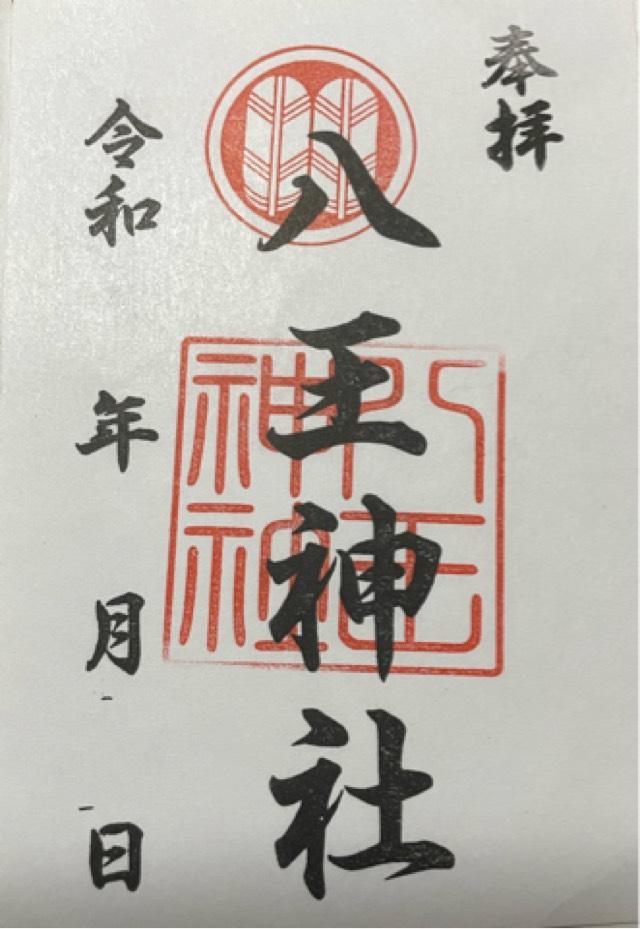 奉拝
八王神社
八王神社
令和 年 月 日